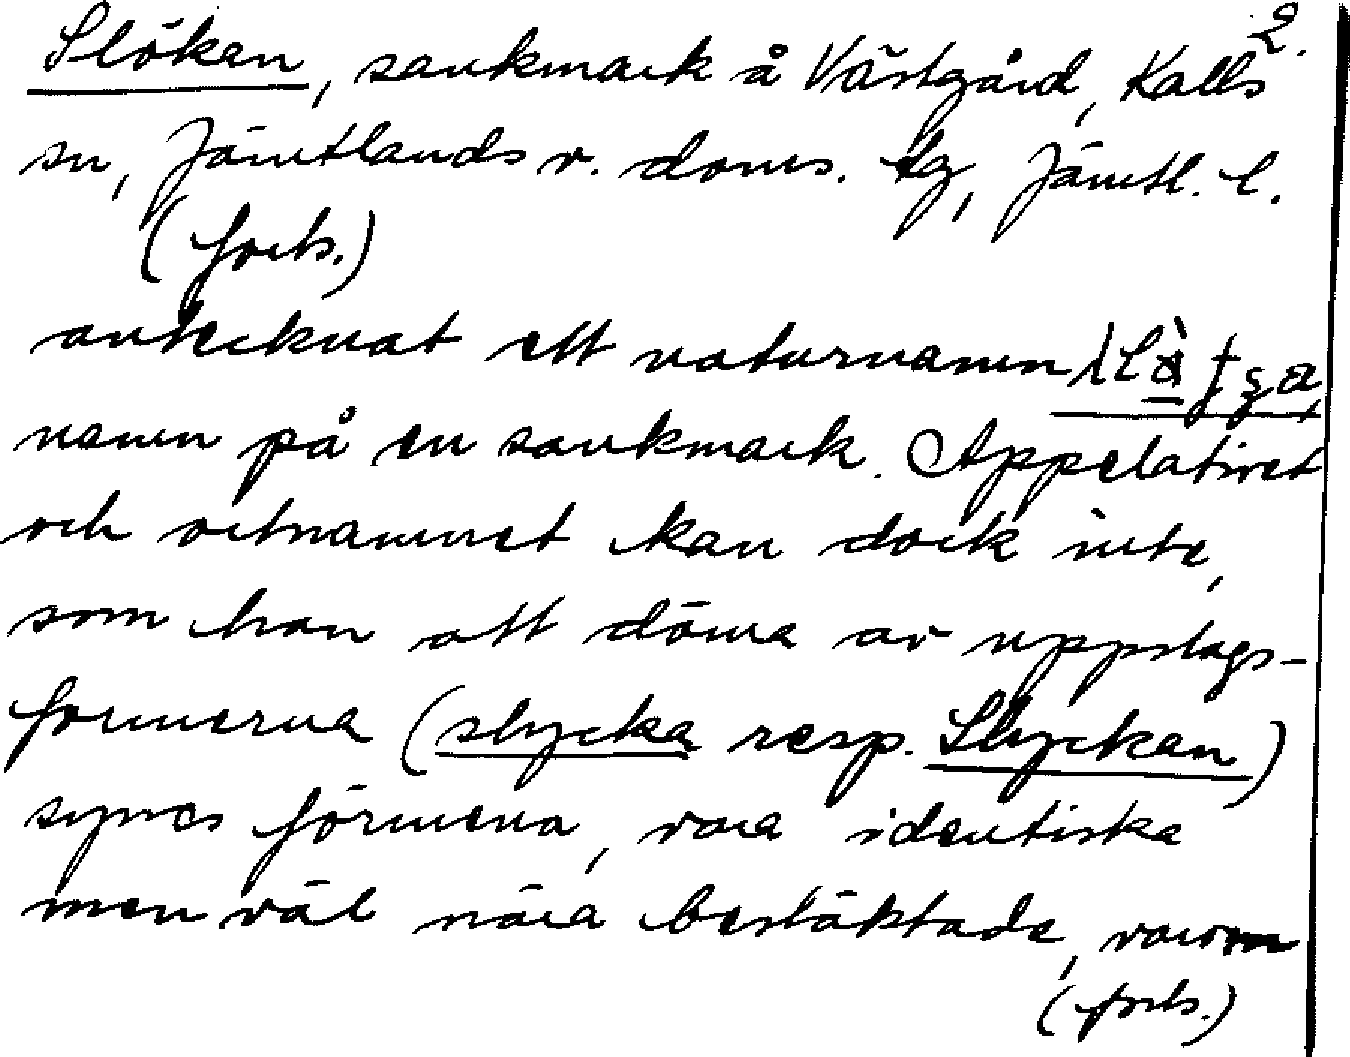 2.
Slökan, sankmark å Västgård, Kalls
sn, Jämtlands v. doms. tg, Jämtl. l.
(forts.)
antecknat ett naturnamn
namn på en sankmark. Appelativet
och ortnamnet kan dock inte,
som han att döma av uppslags-
formerna (slycka resp. Slyckan)
synes förmena, vara identiska
men väl nära besläktade, varom
(forts.)